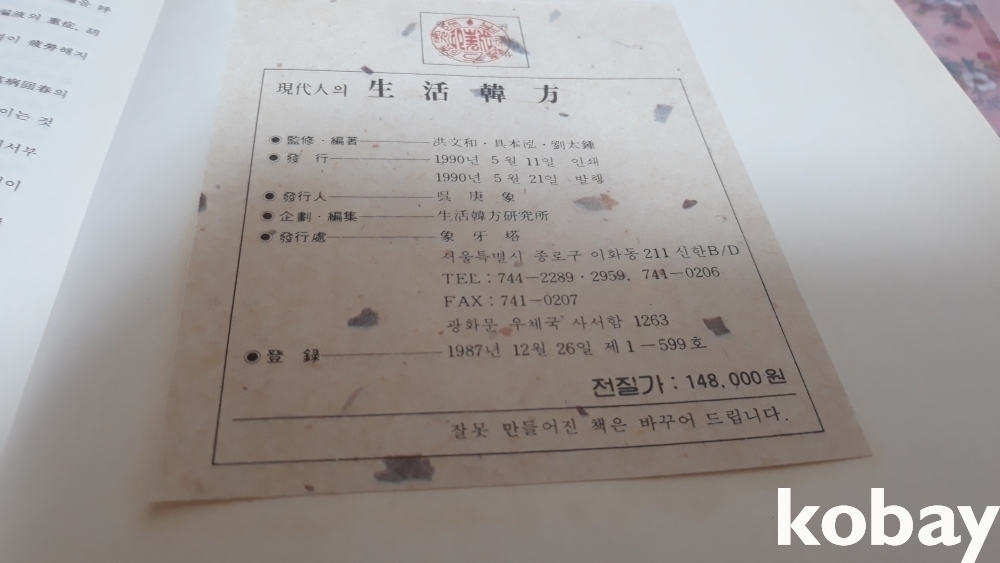 重症, 胡
疲勞해지
病回春의
이는 것
現代人의 生活韓方
● 監修 · 編著 ─ 洪文和 · 具本泓 · 劉太鍾
● 發 行 ─ 1990년 5월 11일 인쇄
1990년 5월 21일 발행
● 發行人 ─ 吳 庚 象
● 企劃 · 編集 ─ 生活韓方硏究所
● 發行處 ─ 象 牙 塔
서울특별시 종로구 이화동 211 신한B/D
TEL : 744-2289 · 2959, 741-0206
FAX : 741-0207
광화문 우체국 사서함 1263
● 登 錄 ─ 1987년 12월 26일 제 1-599호
전질가 : 148,000원
잘못 만들어진 책은 바꾸어 드립니다.
kobay